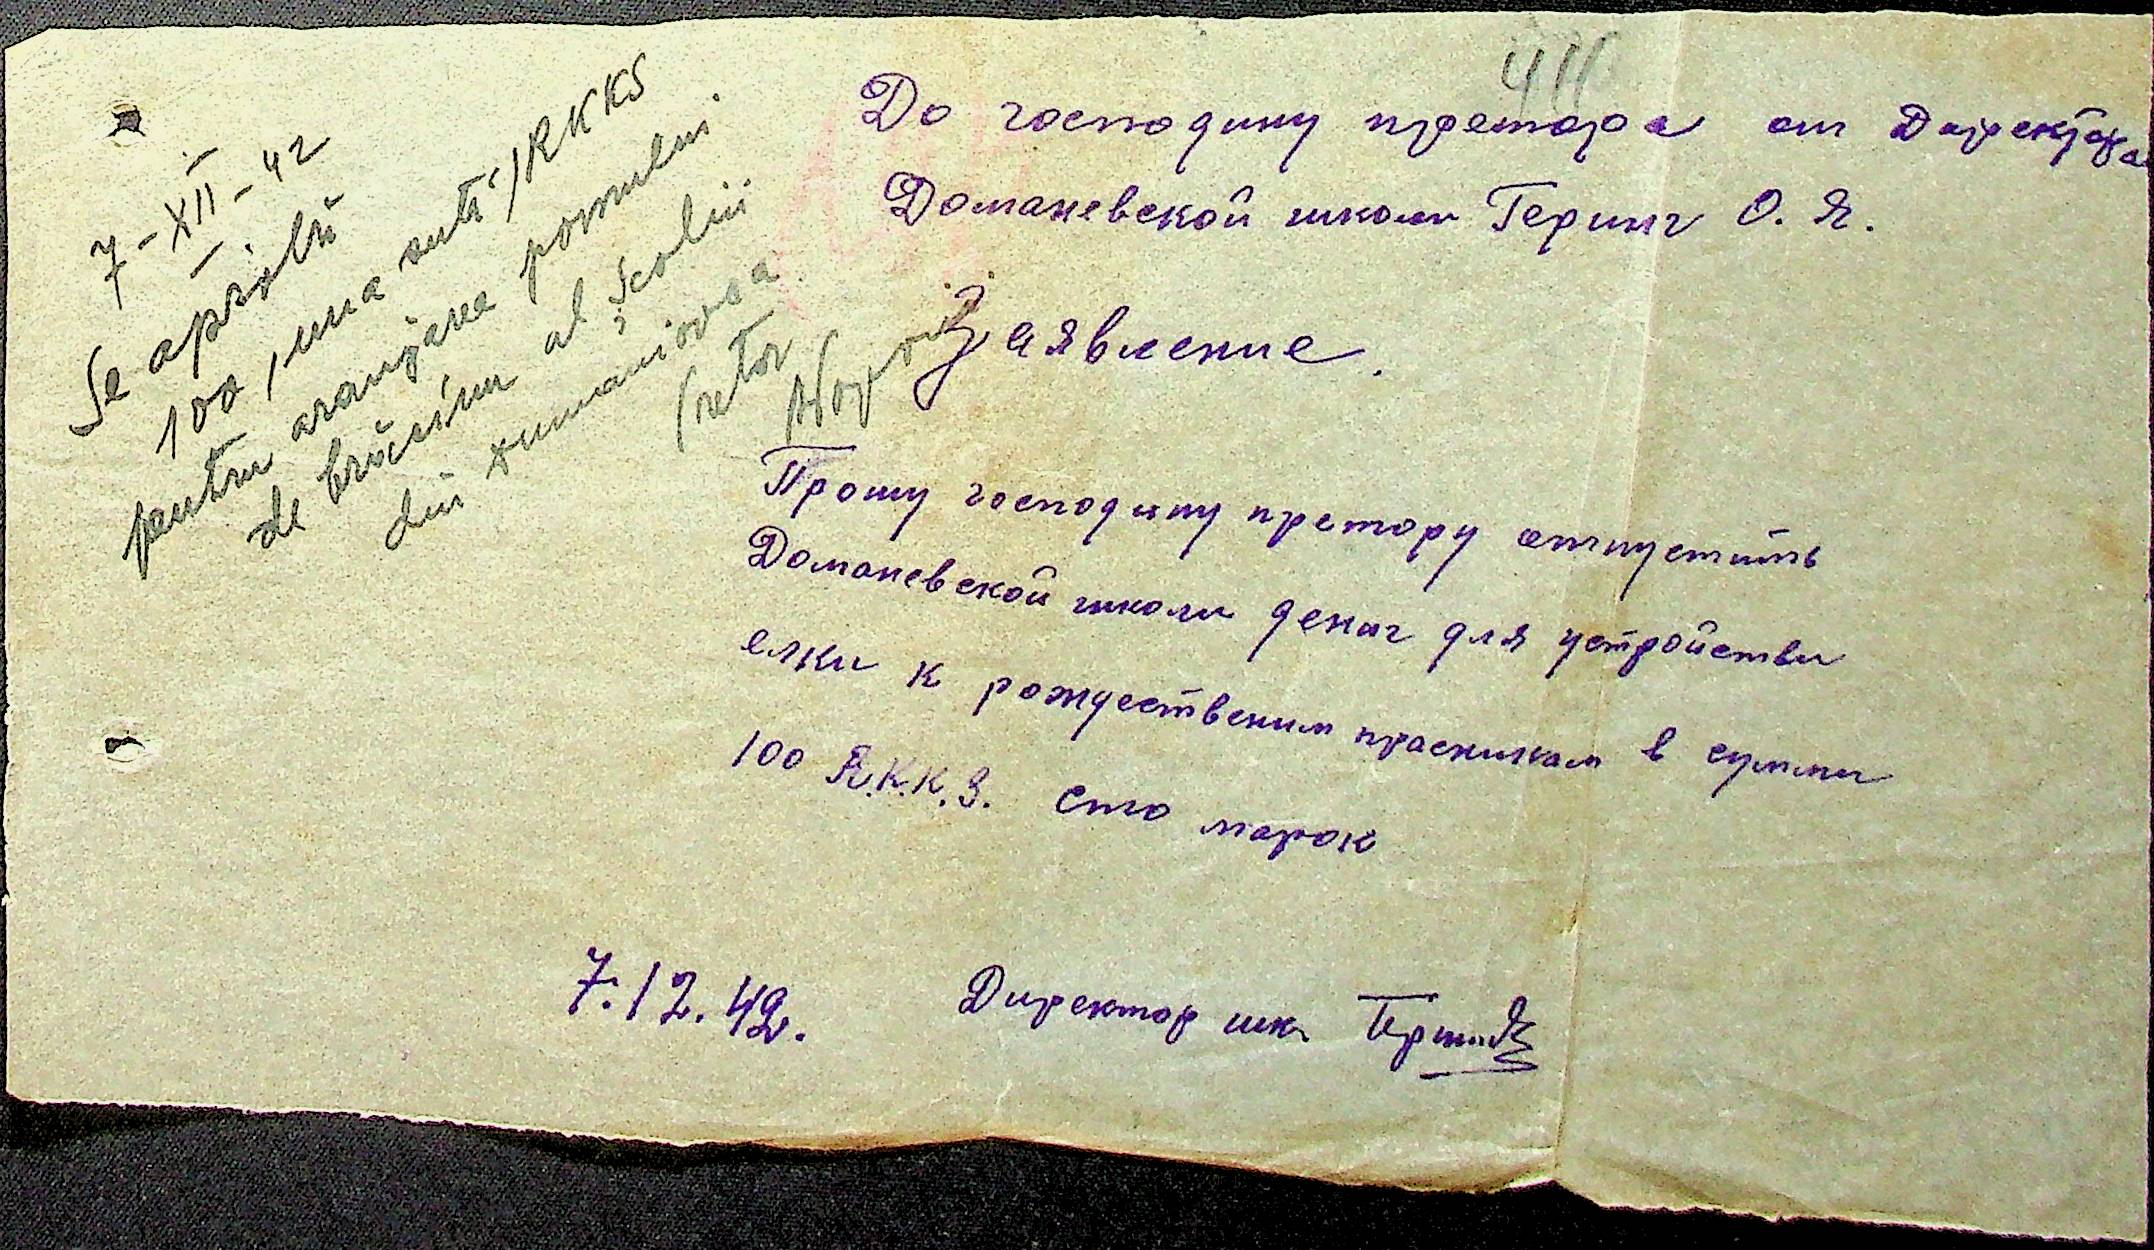 411
До господину претора от Директора
Доманевской школи Геринг О. Я.
Заявление.
Прошу господину претору отпустить
Доманевской школи дениг для устройстви
елки к рождественим праскикам в сумми
100 R.K.K.S. сто марок
7.12.42.
Директор шк. Геринг
7-XII-42
Se aprobă
100, una sută, RKKS
pentru aranjarea pomului
de brăciun al școlii
din Dumaniovca
Pretor